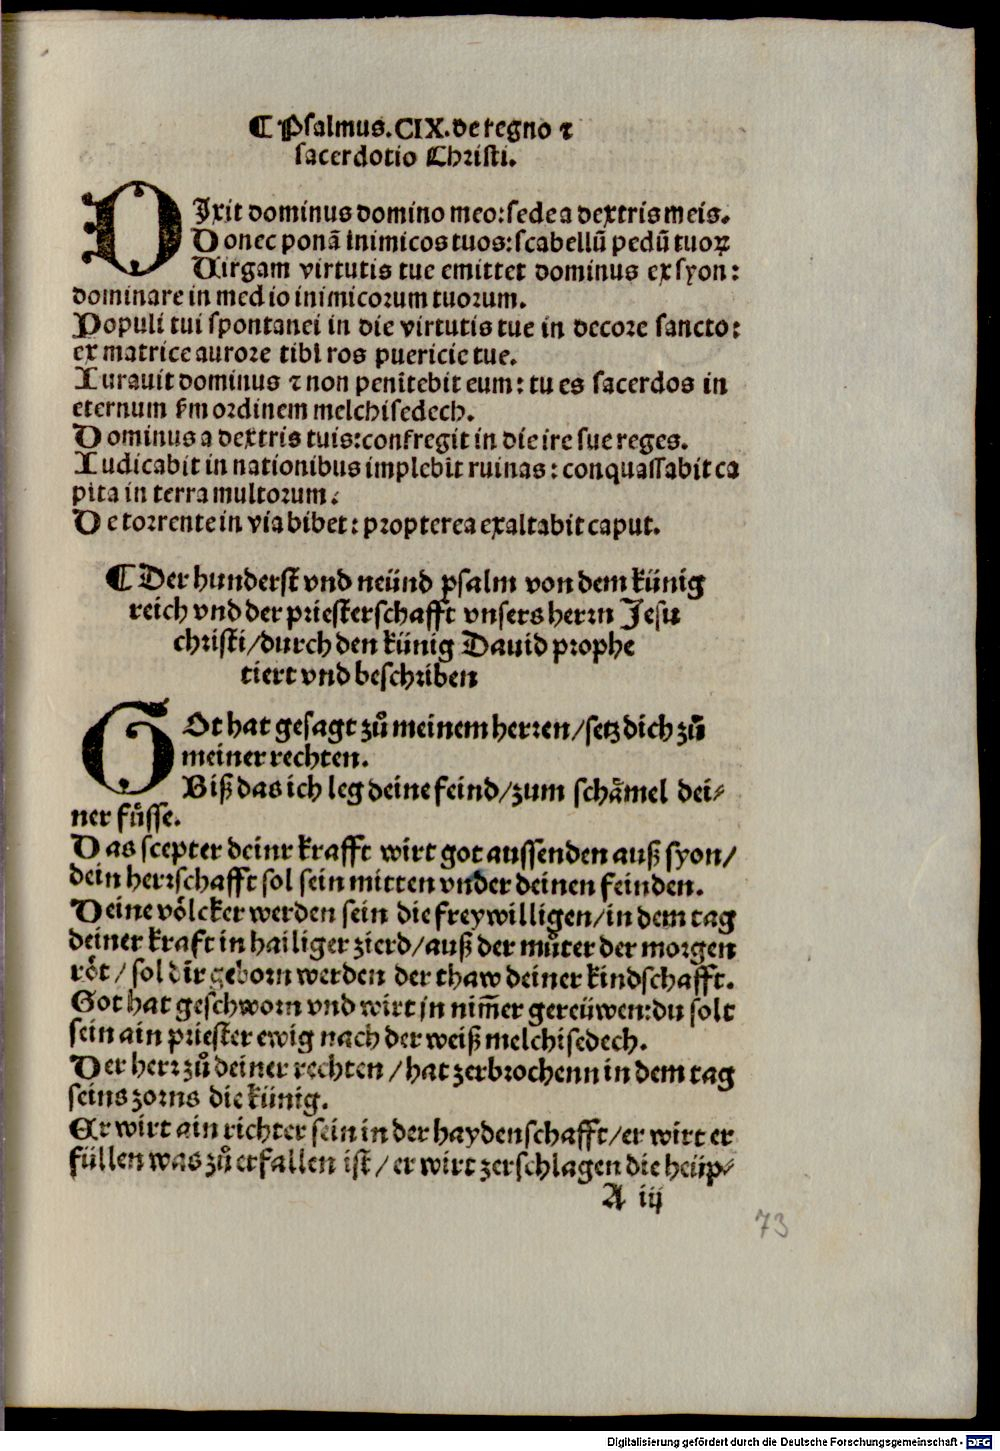 ¶ Psalmus.CIX.de regno ⁊
sacerdotio Christi.
DIxit dominus domino meo: sede a dextris meis.
Donec ponā inimicos tuos: scabellū pedū tuoꝝ
Uirgam virtutis tue emittet dominus ex syon:
dominare in medio inimicorum tuorum.
Populi tui spontanei in die virtutis tue in decore sancto:
ex matrice aurore tibi ros puericie tue.
Iurauit dominus ⁊ non penitebit eum: tu es sacerdos in
eternum ẜm ordinem melchisedech.
Dominus a dextris tuis: confregit in die ire sue reges.
Iudicabit in nationibus implebit ruinas: conquassabit ca
pita in terra multorum.
De torrente in via bibet: propterea exaltabit caput.
¶ Der hunderst vnd neünd psalm von dem künig
reich vnd der priesterschafft vnsers herrn Jesu
christi/durch den künig Dauid prophe
tiert vnd beschriben
GOt hat gesagt zů meinem herren/setz dich zů
meiner rechten.
Biß das ich leg deine feind/zum schämel dei⸗
ner fůsse.
Das scepter deinr krafft wirt got aussenden auß syon/
dein herrschafft sol sein mitten vnder deinen feinden.
Deine völcker werden sein die freywilligen/in dem tag
deiner kraft in hailiger zierd/auß der můter der morgen
röt/ sol dir geborn werden der thaw deiner kindschafft.
Got hat geschworn vnd wirt jn nim̄er gereüwen: du solt
sein ain priester ewig nach der weiß melchisedech.
Der herr zů deiner rechten/hat zerbrochenn in dem tag
seins zorns die künig.
Er wirt ain richter sein in der haydenschafft/er wirt er
füllen was zů erfallen ist/ er wirt zerschlagen die heüp⸗
A iij
73
Digitalisierung gefördert durch die Deutsche Forschungsgemeinschaft - DFG